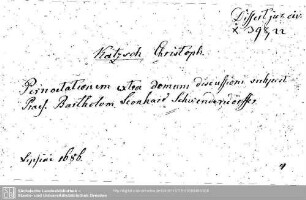 Dissert. jur. civ.
Katzsch, Christoph
Pernoctationem extra domum discussioni subjicit
Praes. Bartholom. Leonhard Schwendendörffer
Lipsiae 1686.
Sächsische Landesbibliothek -
Staats- und Universitätsbibliothek Dresden